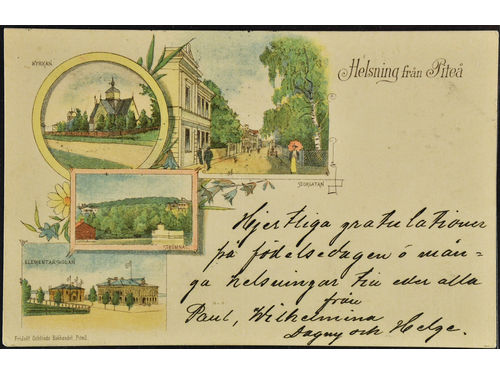 KYRKAN
Helsning från Piteå
STORGATAN
STRÖMNÄS
ELEMENTARSKOLAN
Hjertliga gratulationer
på födelsedagen o mån-
ga helsningar till eder alla
från
Paul, Wilhelmina
Dagny och Helge.
Bokhandel, Piteå